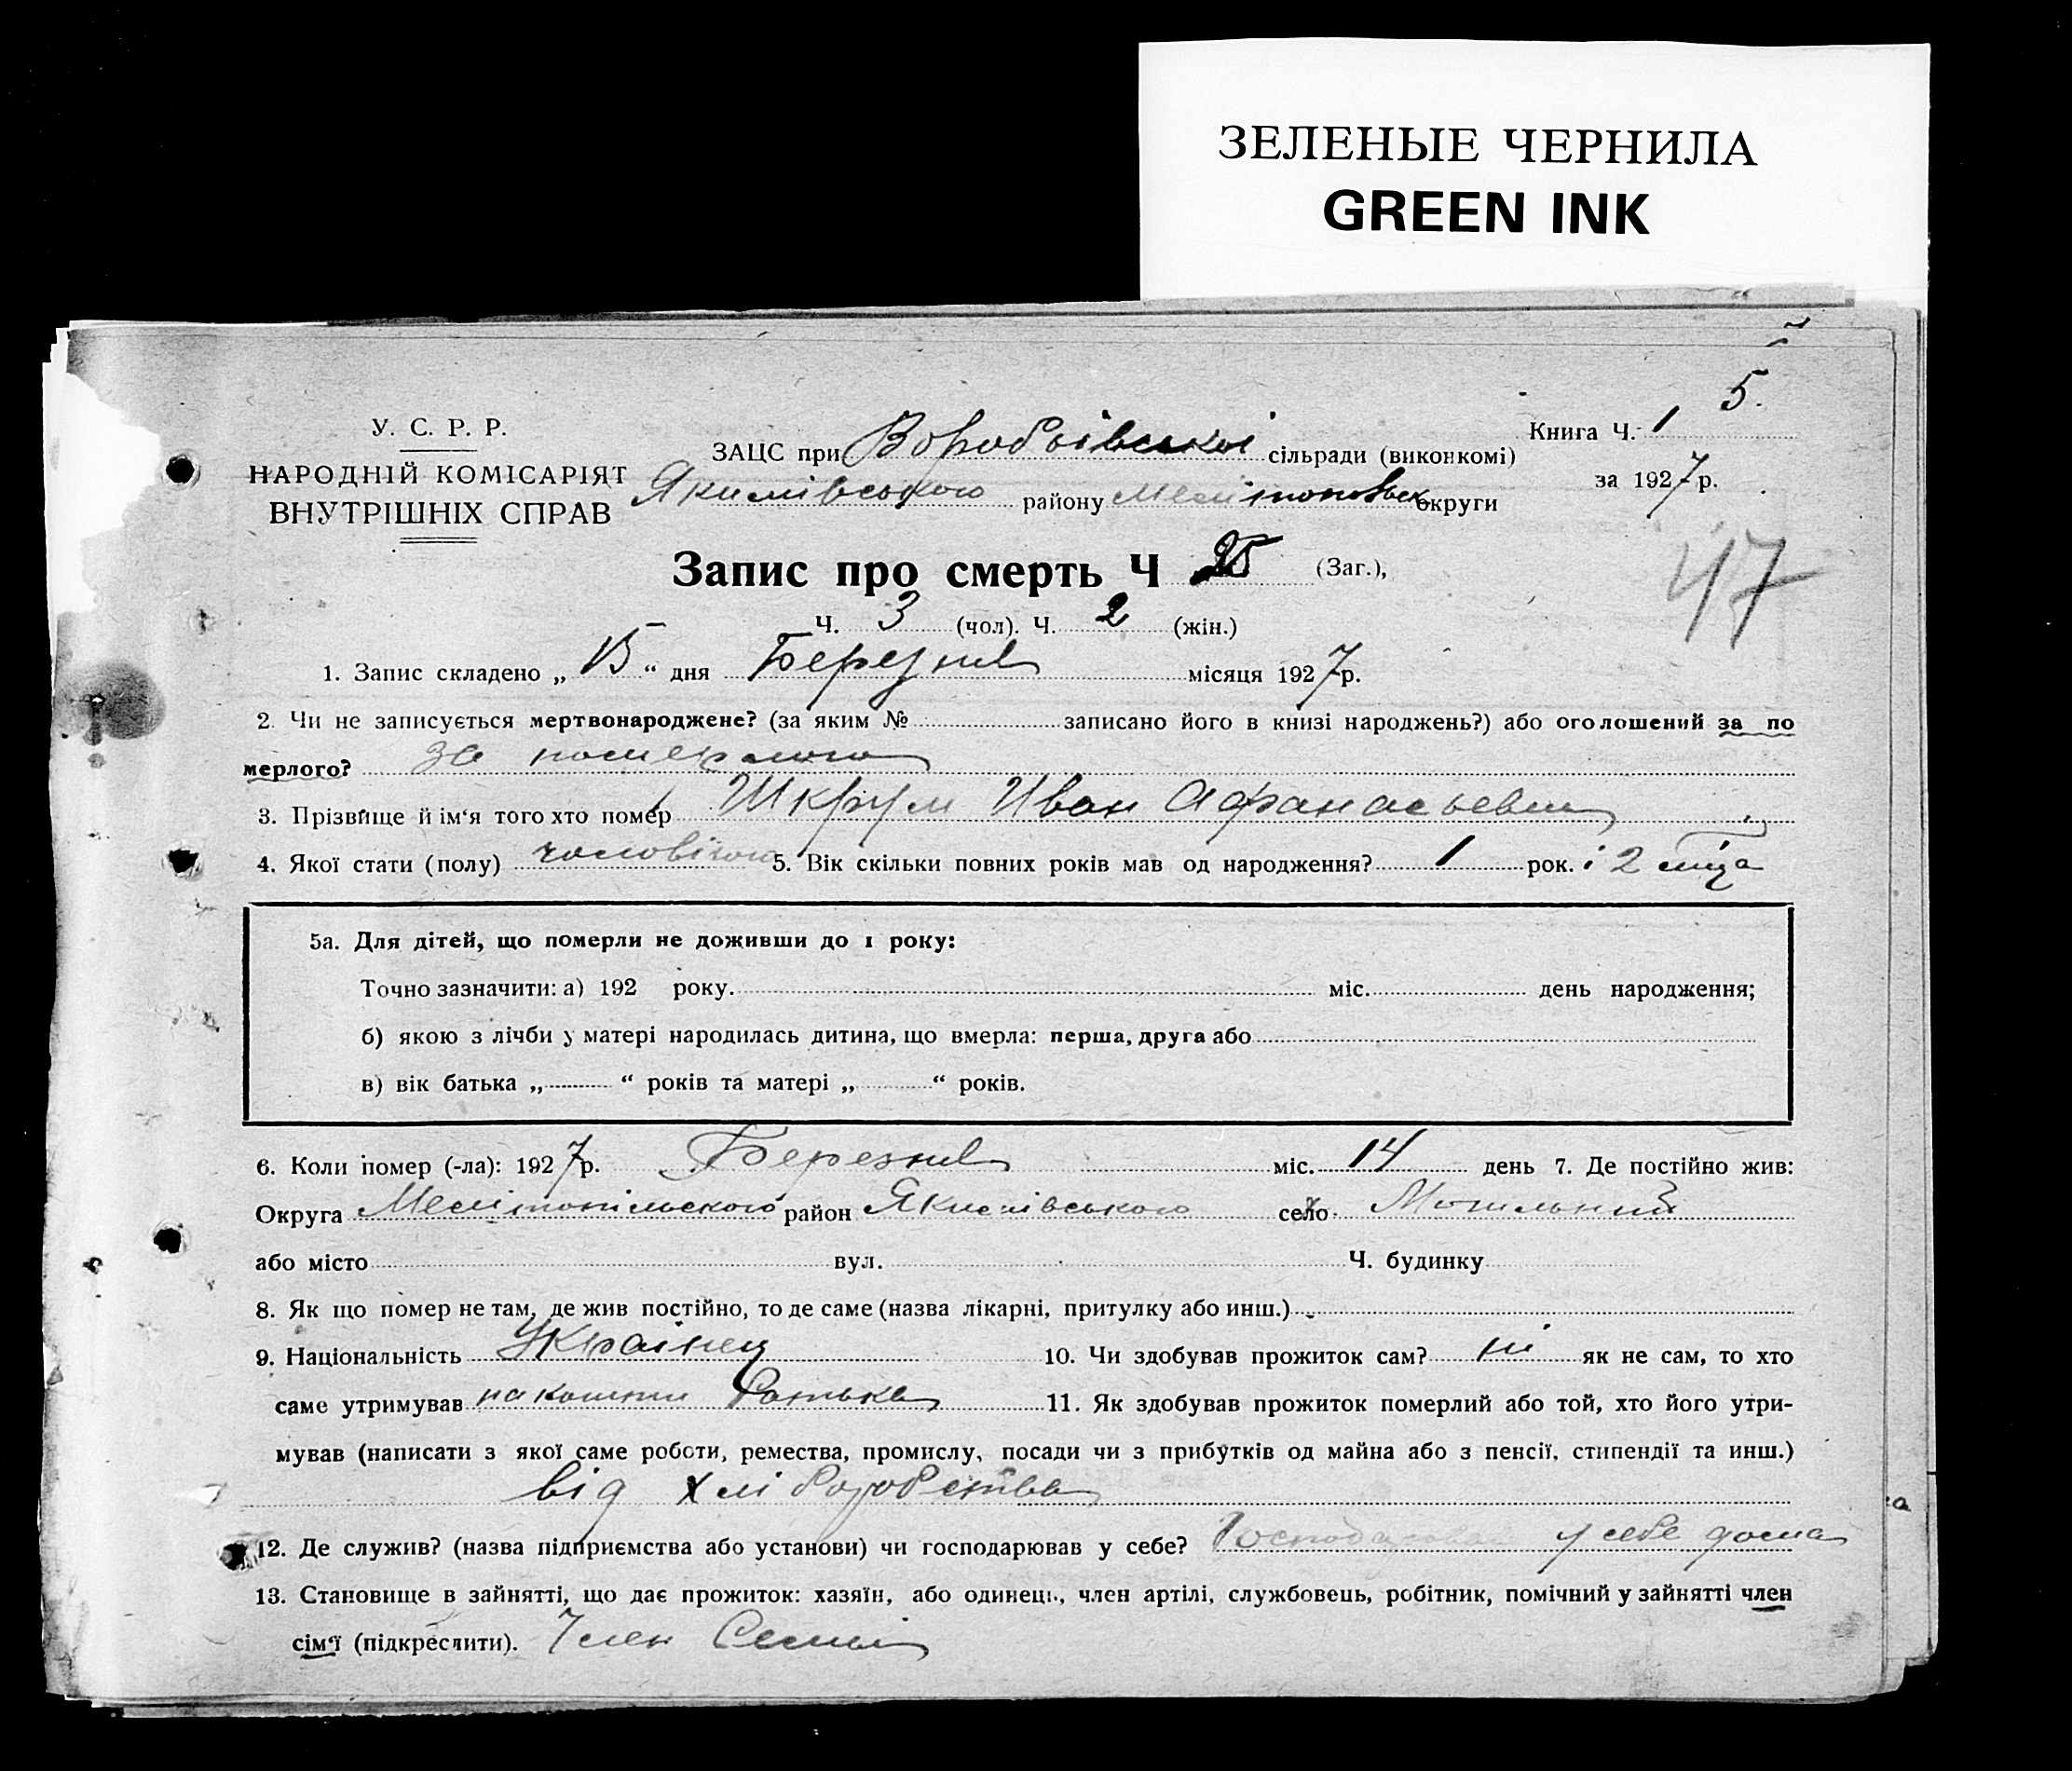 ЗЕЛЕНЫЕ ЧЕРНИЛА
GREEN INK
5.
У. С. Р. Р.
НАРОДНІЙ КОМІСАРІЯТ
ВНУТРІШНІХ СПРАВ
ЗАЦС при Воробьівської сільради (виконкомі)
Якимівського району округи
Книга Ч. 1
за 1927 р.
47
Запис про смерть Ч (Заг.),
Ч. 3 (чол). Ч. 2 (жін.)
1. Запис складено „ 15 “ дня Березня місяця 1927 р.
2. Чи не записується мертвонароджене? (за яким № записано його в книзі народжень?) або оголошений за по
мерлого? за померлого
3. Прізвище й ім‘я того хто помер Шкрум Иван Афанасьевич
4. Якої стати (полу) чоловічого 5. Вік скільки повних років мав од народження? 1 рок. і 2 міца
5а. Для дітей, що померли не доживши до 1 року:
Точно зазначити: а) 192 року. міс. день народження;
б) якою з лічби у матері народилась дитина, що вмерла: перша, друга або
в) вік батька „ “ років та матері „ “ років.
6. Коли помер (-ла): 1927 р. Березня міс. 14 день 7. Де постійно жив:
Округа Мелітопільского район Якимівського село Могильний
або місто вул. Ч. будинку
8. Як що помер не там, де жив постійно, то де саме (назва лікарні, притулку або инш.)
9. Національність Україней 10. Чи здобував прожиток сам? ні як не сам, то хто
саме утримував на кошти батька 11. Як здобував прожиток померлий або той, хто його утри-
мував (написати з якої саме роботи, ремества, промислу, посади чи з прибутків од майна або з пенсії, стипендії та инш.)
від хліборобства
12. Де служив? (назва підприємства або установи) чи господарював у себе? Господарював у себе дома
13. Становище в зайнятті, що дає прожиток: хазяїн, або одинець, член артілі, службовець, робітник, помічний у зайнятті член
сім‘ї (підкреслити). Член Семьі